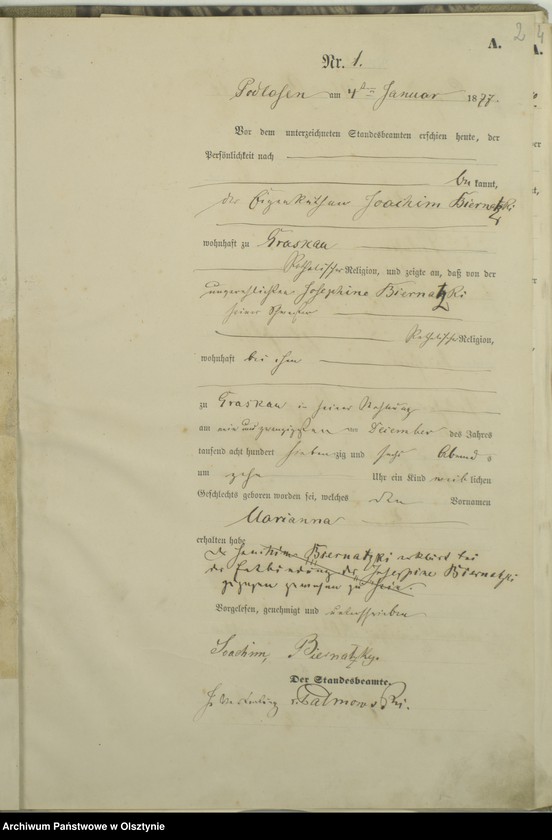 A. 2 4
Nr. 1.
Podlasen am 4ten Januar 1877.
Vor dem unterzeichneten Standesbeamten erschien heute, der
Persönlichkeit nach
be kannt,
der Eigenkäthner Joachim Biernatzki
wohnhaft zu Graskau
Katholischer Religion, und zeigte an, daß von der
unverehelichten Josephine Biernatzki
seiner
Katholischer Religion,
wohnhaft bei ihm
zu Graskau in seiner Wohnung
am ein und zwanzigsten Dezember des Jahres
tausend acht hundert siebenzig und sechs Abends
um zehn Uhr ein Kind weiblichen
Geschlechts geboren worden sei, welches den Vornamen
Marianna
erhalten habe
Der Joachim Biernatzki erklärt bei
der Entbindung der Josephine Biernatzki
zugegen gewesen zu sein.
Vorgelesen, genehmigt und unterschrieben
Joachim Biernatzky.
Der Standesbeamte.
In Vertretung
Archiwum Państwowe w Olsztynie